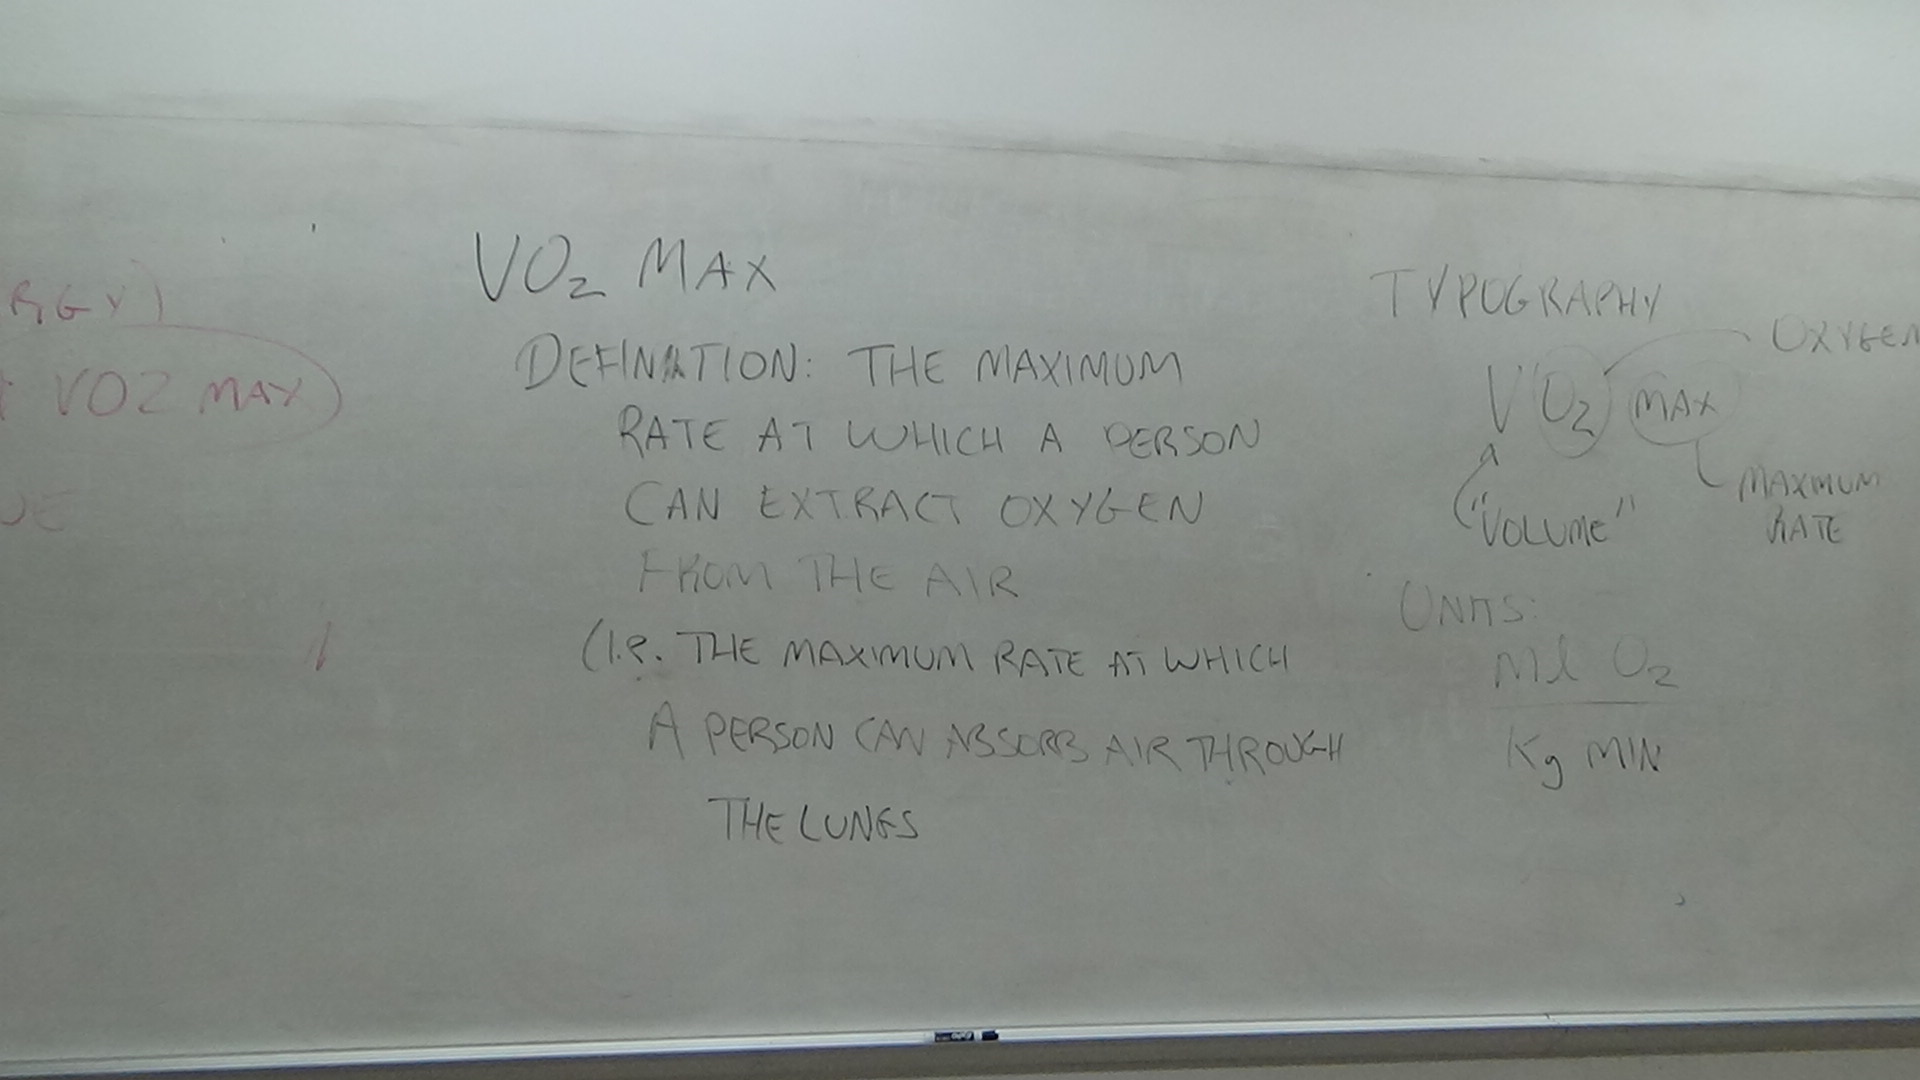 RGY)
VO2 MAX)
UE
VO₂ MAX
DEFINATION: THE MAXIMUM
RATE AT WHICH A PERSON
CAN EXTRACT OXYGEN
FROM THE AIR
(I.e. THE MAXIMUM RATE AT WHICH
A PERSON CAN ABSORB AIR THROUGH
THE LUNGS
TYPOGRAPHY
OXYGEN
VO₂ MAX
"VOLUME"
MAXMUM
RATE
UNITS:
Ml O₂
Kg MIN